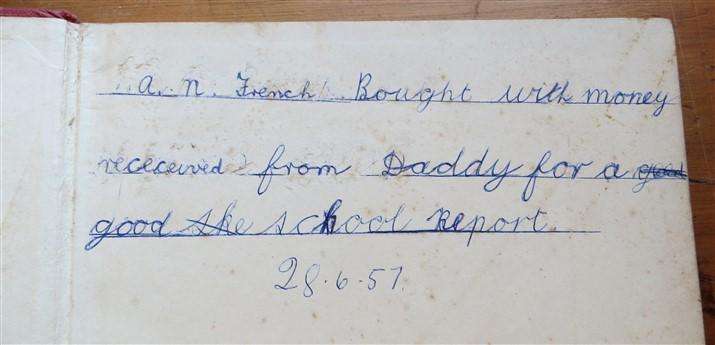 A. N. French Bought with money
receceived from Daddy for a good
good ske school Report.
28.6.57.